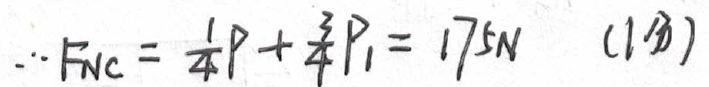 ∴ F_NC = 1/4 P + 3/4 P₁ = 175N （1分）